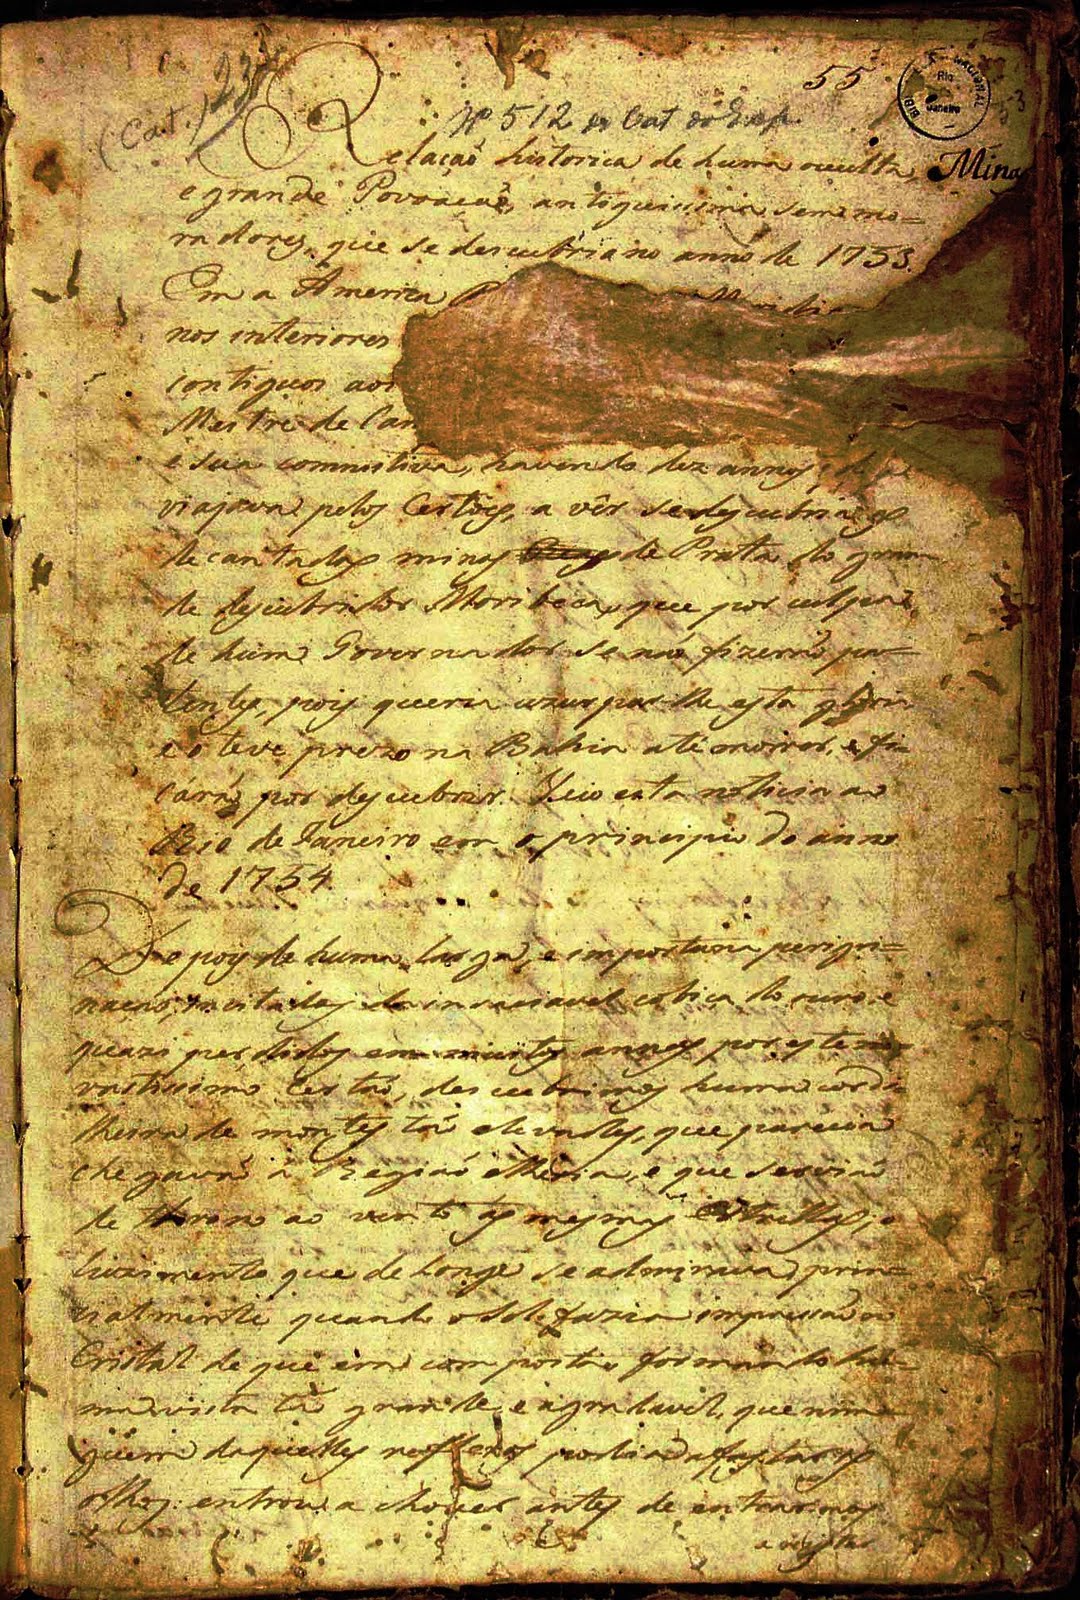 55
BIBL NACIONAL
Rio
Janeiro
53
(Cat.) 23
Nº 512 do Cat da Exp.
Minas
Relação historica de huma occulta,
e grande Povoação, antiquissima sem mo=
radores, que se descubriu no anno de 1753.
Em a America Meridi
nos interiores
contiguos aos
Mestre de Can
e sua commitiva, havendo dez annos, q
viajava pelos Certões, a vêr se descubria as
decantadas minas de Prata do gran
de descubridor Moribeca, que por culpa
de hum Governador se naõ fizeraõ pa=
tentes, pois queria uzurparlhe esta gloria
e o teve prezo na Bahia até morrer, e fi=
cáraõ por descubrir. Veio esta noticia ao
Rio de Janeiro em o principio do anno
de 1754
Depoys de huma larga, e importuna perigri=
naçaõ, incitados da insaciavel cobiça do ouro, e
quazi perdidos em muitos annos por este
vastissimo Certaõ, descubrimos huma cordi
lheira de montes taõ elevados, que parecia
chegavaõ á Regiaõ etheria, e que serviaõ
de throno ao vento, ás mesmas Estrellas; o
luzimento que de longe se admirava, prin=
cialmente quando o Sol fazia impressaõ ao
Cristal de que era composta, formando hu=
ma vista taõ grande, e agradavel, que nin=
guem daquelles reflexos podia afastar os
olhos: entrou a chover antes de entrarmos
a registar